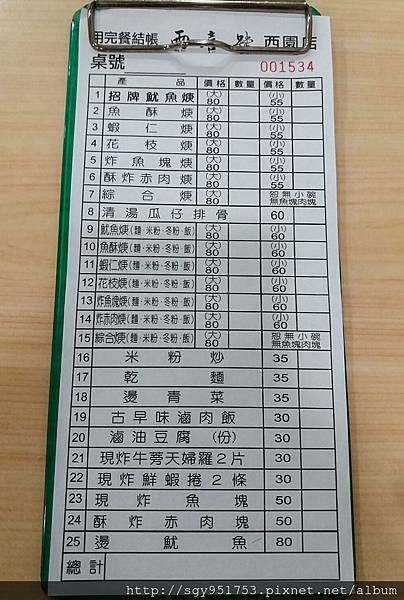 用完餐結帳 西園店
桌號 001534
產品 價格 數量 價格 數量
1 招牌魷魚焿 (大)80 (小)55
2 魚酥焿 (大)80 (小)55
3 蝦仁焿 (大)80 (小)55
4 花枝焿 (大)80 (小)55
5 炸魚塊焿 (大)80 (小)55
6 酥炸赤肉焿 (大)80 (小)55
7 綜合焿 (大)80 恕無小碗 無魚塊肉塊
8 清湯瓜仔排骨 60
9 魷魚焿(麵·米粉·冬粉·飯) (大)80 (小)60
10 魚酥焿(麵·米粉·冬粉·飯) (大)80 (小)60
11 蝦仁焿(麵·米粉·冬粉·飯) (大)80 (小)60
12 花枝焿(麵·米粉·冬粉·飯) (大)80 (小)60
13 炸魚塊焿(麵·米粉·冬粉·飯) (大)80 (小)60
14 炸赤肉焿(麵·米粉·冬粉·飯) (大)80 (小)60
15 綜合焿(麵·米粉·冬粉·飯) (大)80 恕無小碗 無魚塊肉塊
16 米粉炒 35
17 乾麵 35
18 燙青菜 35
19 古早味滷肉飯 30
20 滷油豆腐(份) 30
21 現炸牛蒡天婦羅2片 30
22 現炸鮮蝦捲2條 30
23 現炸魚塊 50
24 酥炸赤肉塊 50
25 燙魷魚 80
總計
http://sgy951753.pixnet.net/album